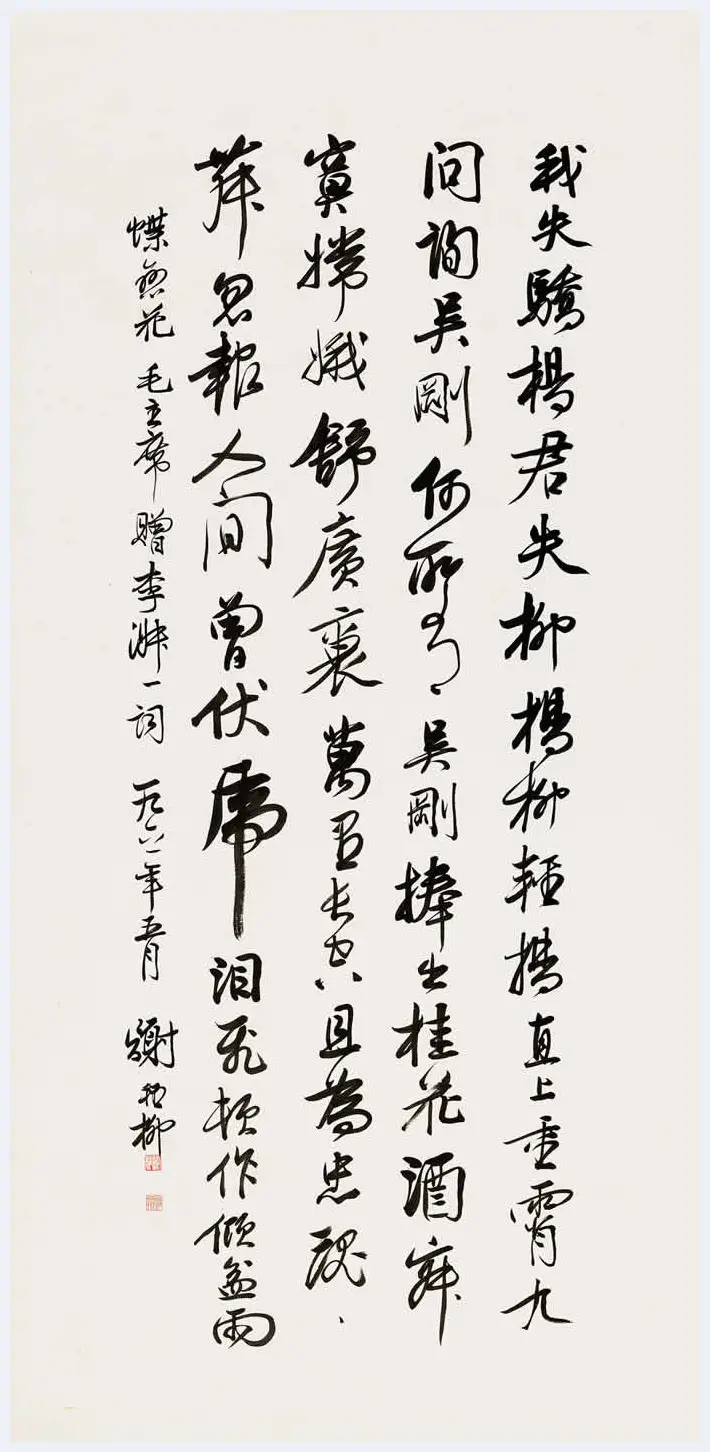 我失驕楊君失柳楊柳輕揚直上重霄九
問詢吳剛何所有、吳剛捧出桂花酒寂
寞嫦娥舒廣褎萬里長空且為忠魂、
舞忽報人间曾伏虎泪飛頓作傾盆雨
蝶戀花 毛主席贈李淑一詞 一九六一年五月 謝稚柳